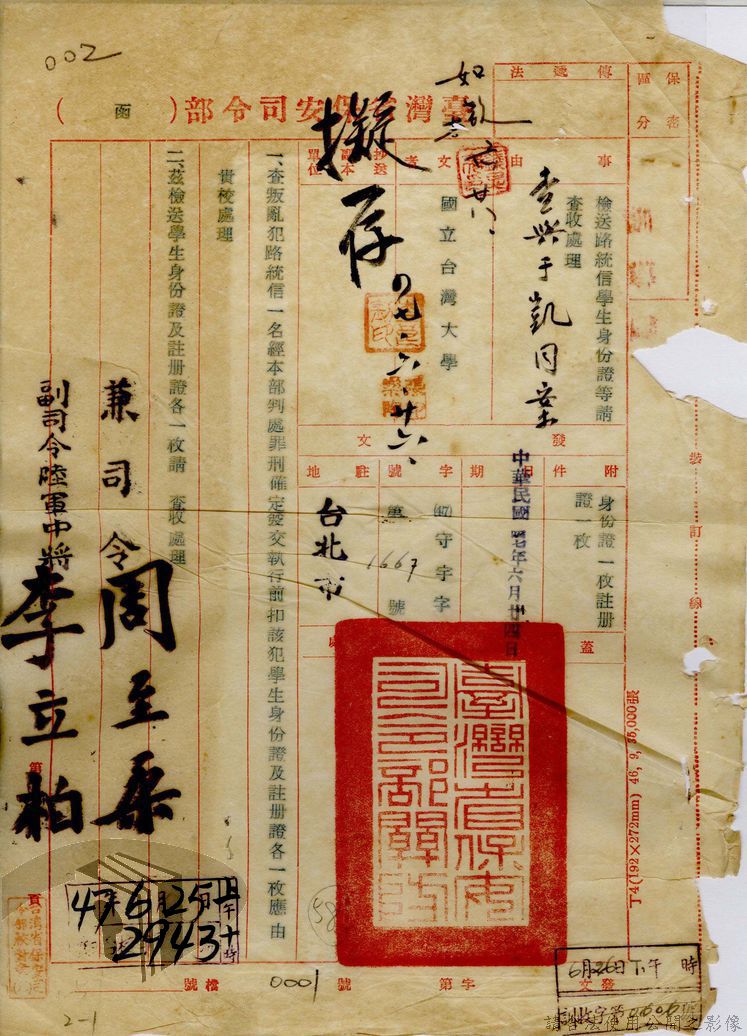 002
臺灣省保安司令部（　函　）
保密
區分
傳遞
法
事由
檢送路統信學生身份證等請
查收處理
如擬
查與于凱同案
擬存
四七、六、廿六、
受文者
國立台灣大學
抄送
副本
單位
附件
身份證一枚註冊
證一枚
發文
日期
中華民國四七年六月廿四日
字號
(47)守宇字
第1667號
駐地
台北市
蓋
臺灣省保安司令部關防
一、查叛亂犯路統信一名經本部判處罪刑確定發交執行前扣該犯學生身份證及註册證各一枚應由
貴校處理
二、茲檢送學生身份證及註册證各一枚請　查收處理
兼司令周至柔
副司令陸軍中將李立柏
裝訂線
丁4(192×272mm) 46, 9, 35,000張
第
頁
47年6月25日上午十時
2943
58
檔號
0001
字第
號
6月26日下午　時
發文
2-1
請合法使用公開之影像